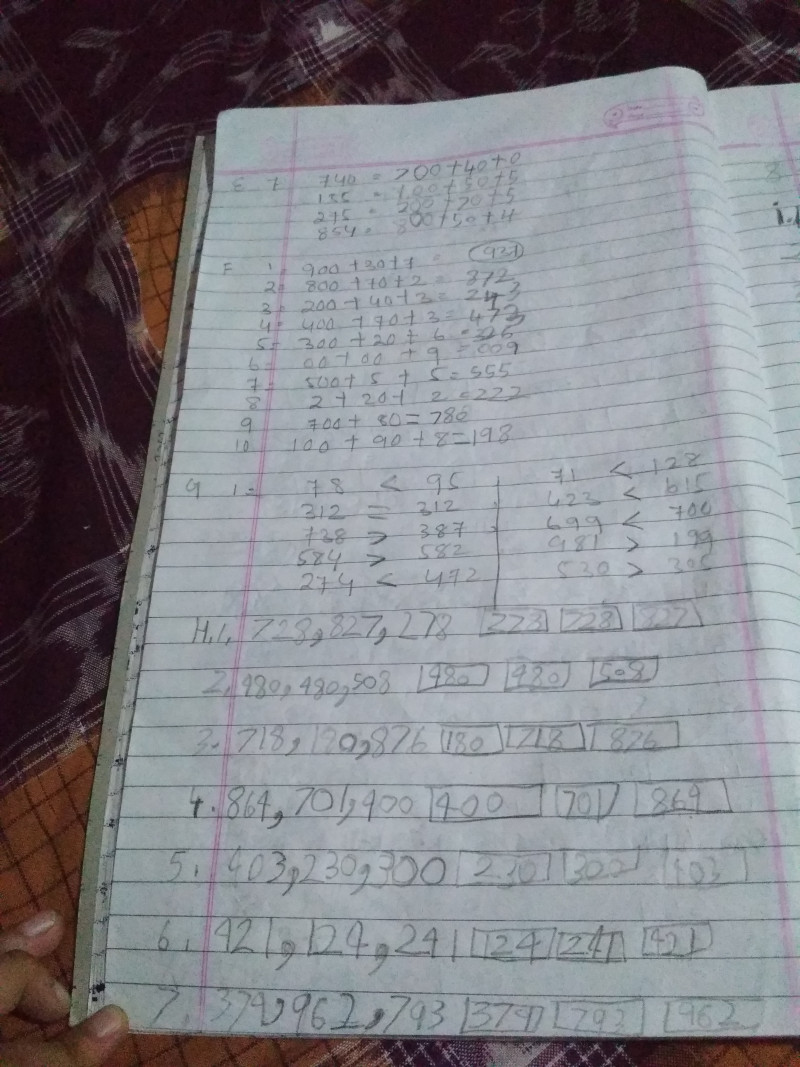 E 7 740 = 700+40+0
155 = 100+50+5
275 = 200+70+5
854 = 800+50+4
F 1- 900+30+7 = 937
2- 800+70+2 = 872
3- 200+40+3 = 243
4- 400+70+3 = 473
5- 300+20+6 = 326
6- 00+00+9 = 009
7- 500+5+5=555
8 2+20+2=222
9 700+80=780
10 100+90+8=198
G 1- 78 < 95 71 < 128
312 = 312 423 < 615
738 > 387 699 < 700
584 > 582 981 > 199
274 < 472 530 > 305
H.1. 728,827,278 278 728 827
2. 480,480,508 480 480 508
3. 718,180,876 180 718 876
4. 864,701,400 400 701 864
5. 403,230,300 230 300 403
6. 421,124,241 124 241 421
7. 379,962,793 379 793 962